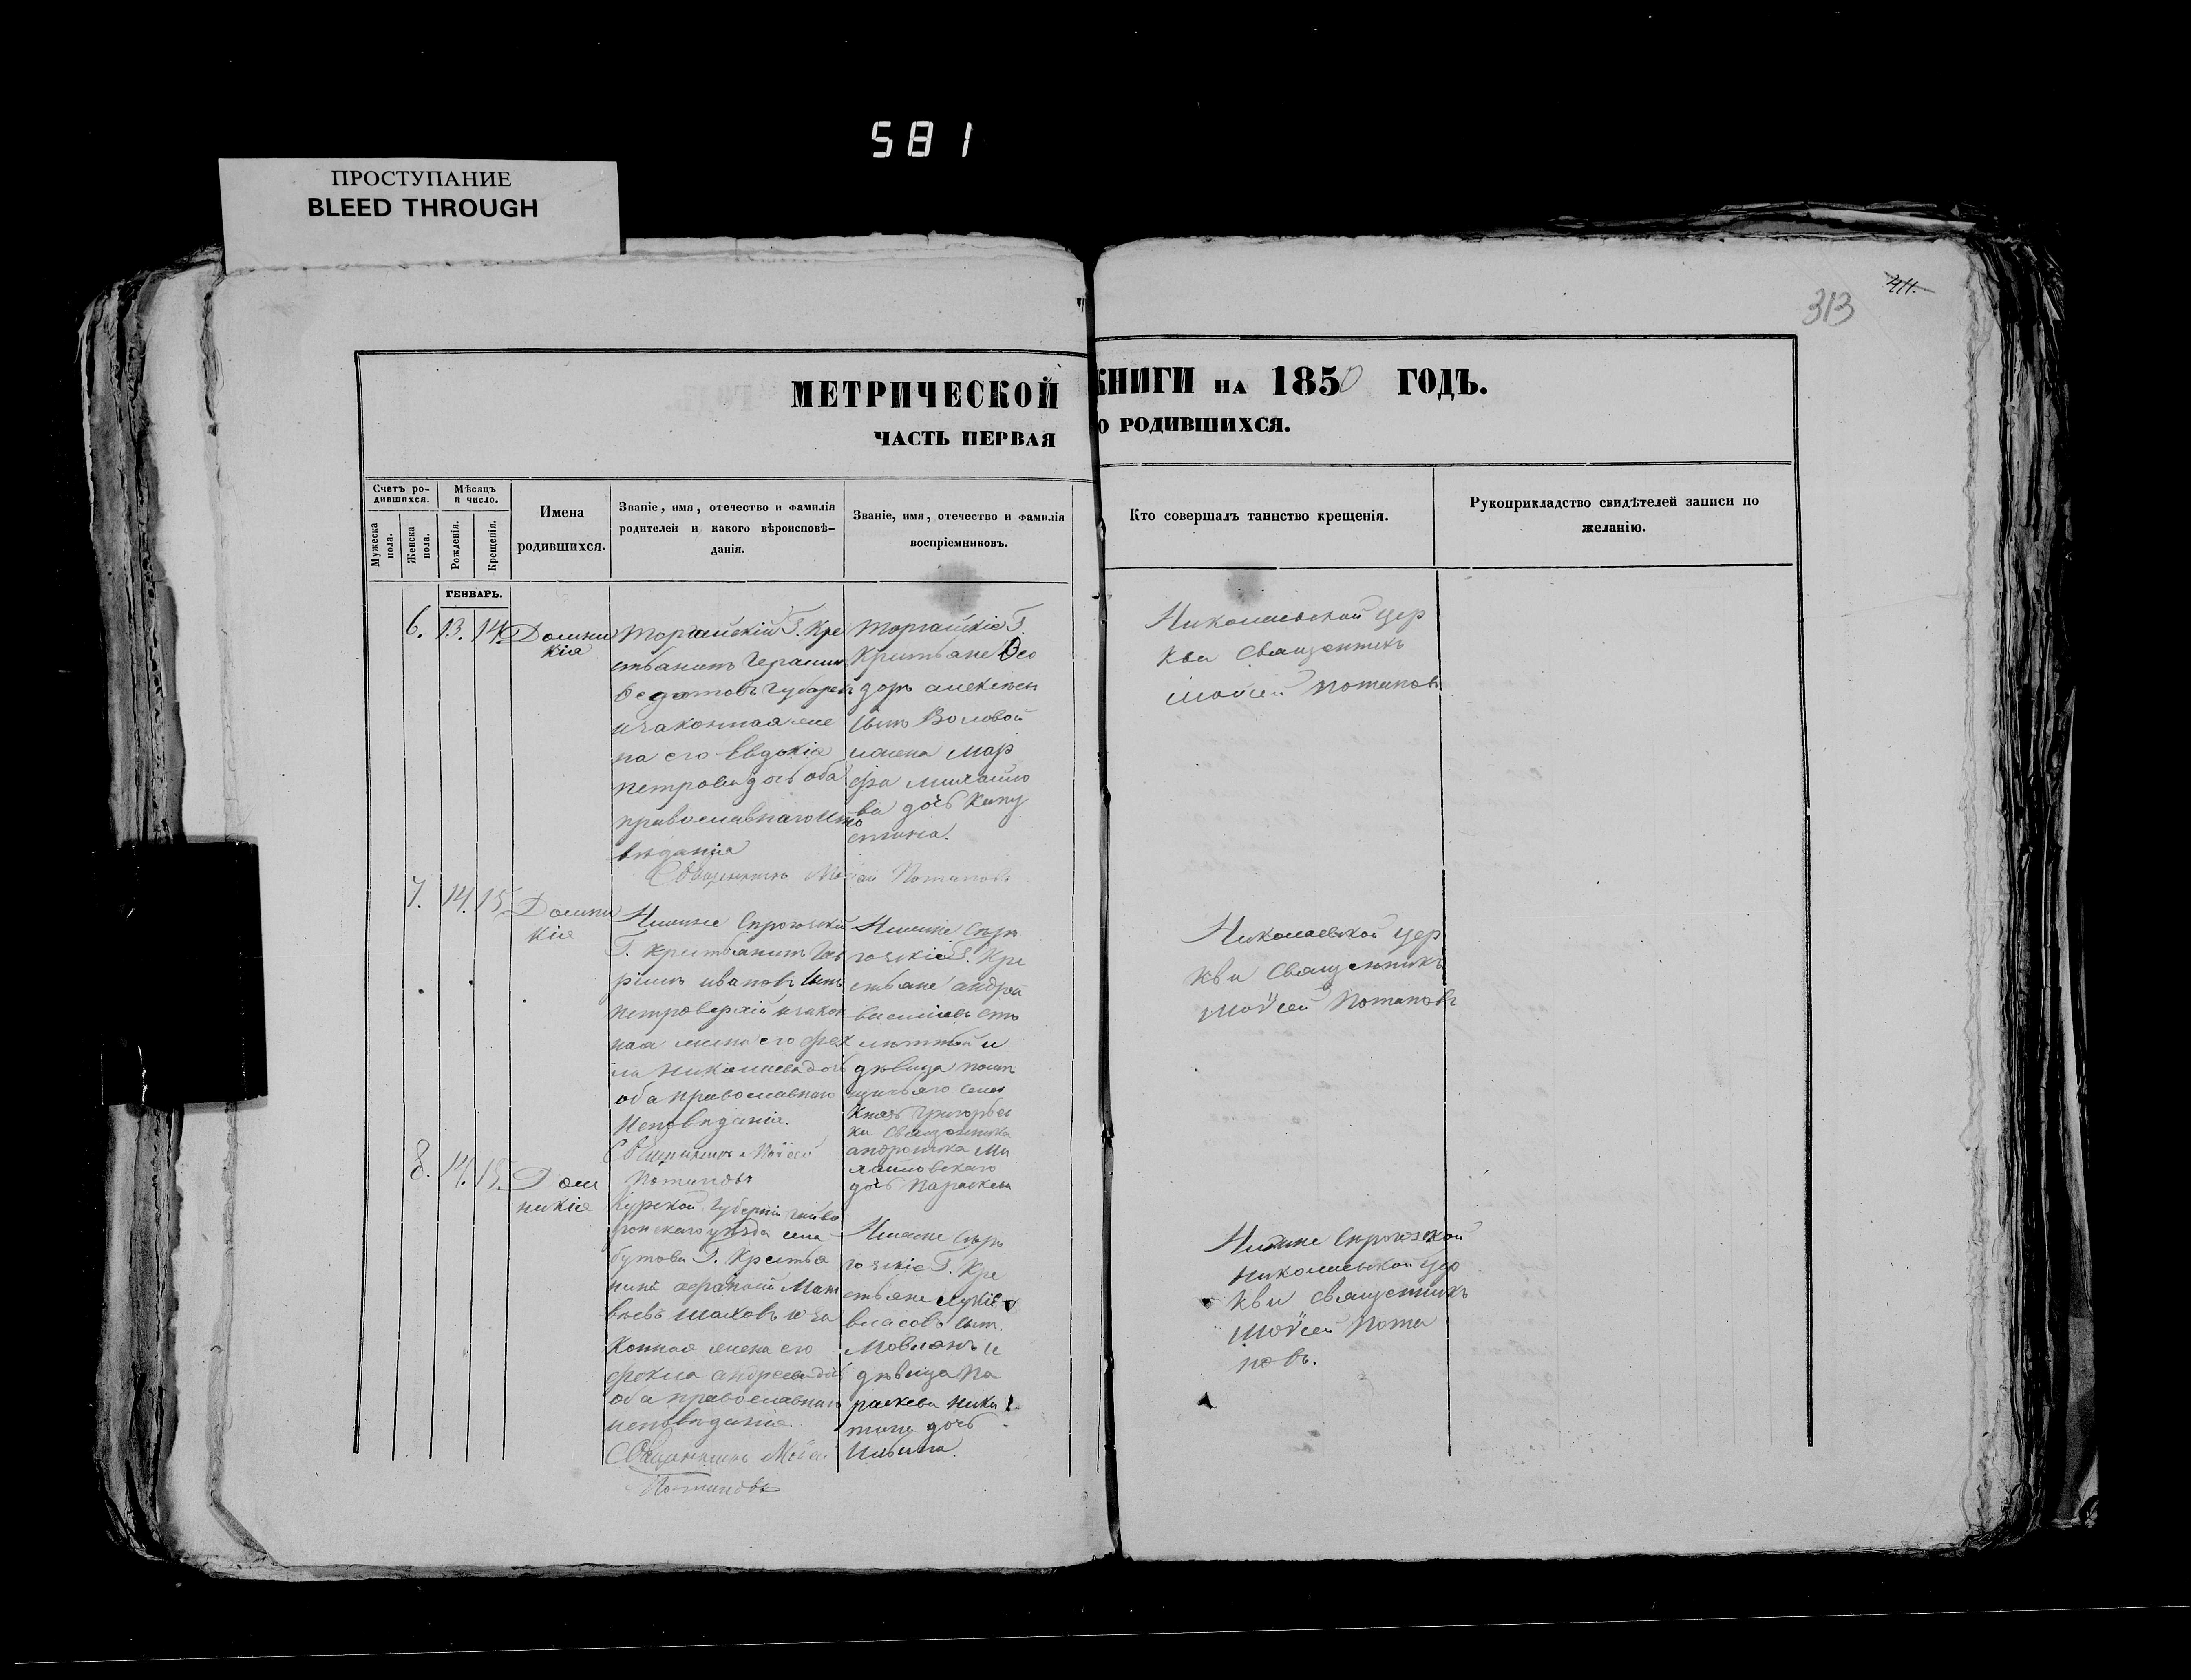 581
ПРОСТУПАНИЕ
BLEED THROUGH
411.
313
МЕТРИЧЕСКОЙ КНИГИ НА 1850 ГОДЪ.
ЧАСТЬ ПЕРВАЯ О РОДИВШИХСЯ.
Счетъ ро-
дившихся.
Мужеска
пола.
Женска
пола.
Мѣсяцъ
и число.
Рожденія.
Крещенія.
Имена
родившихся.
Званіе, имя, отечество и фамилія
родителей и какого вѣроисповѣ-
данія.
Званіе, имя, отечество и фамилія
воспріемниковъ.
Кто совершалъ таинство крещенія.
Рукоприкладство свидѣтелей записи по
желанію.
ГЕНВАРЬ.
6. 13. 14. Домни
кія
Г. Кре
стьанинъ
и законная же
на его Евдокіа
Петрова дочь оба
православнаго испо
вѣданіа
Священникъ Моисей Потаповъ
Г.
Крестьяне Ѳео
доръ
сынъ Воловой
жена Мар
фа Михайло
ва дочь Капу
стина.
Николаевской цер
кви Священникъ
Мойсей Потаповъ
7. 14. 15. Домни
кіа
Нижне Сѣрогозскій
Г. Крестьанинъ
Ивановъ сынъ
и закон
ная жена его Фек
ла Николаева дочь
оба православнаго
Исповѣданіа.
Священникъ Мойсей
Потаповъ
Нижне Сѣро
гозскіе Г. Кре
стьяне Андрей
и
дѣвица
Князь Григорьев
ки Священника
Андроника Ми
хайловскаго
дочь Параскева
Николаевской цер
кви Священникъ
Мойсей Потаповъ
8. 14. 15. Дом
никіа
Курской Губерніи
уѣзда села
Г. Крестья
нинъ Мат
вѣевъ и за
Конная жена его
Фекла Андреева дочь
оба православнаго
исповѣданіа.
Священникъ Мойсей
Потаповъ
Нижне Сѣро
гозскіе Г. Кре
стьяне
Власовъ сынъ
и
дѣвица Па
раскева Ники
тина дочь
Ильина.
Нижне Сѣрогозской
Николаевской Цер
кви Священникъ
Мойсей Пота
повъ.